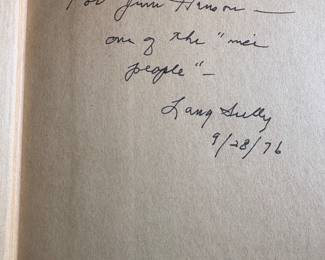 For Jim Hanson —
one of the "nice
people" —
Lang Sully
9/28/76